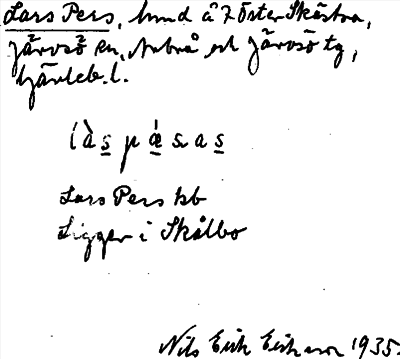 Lars Pers, hmd å 7 Öster Skästra,
Järvsö sn, Arbrå och Järvsö tg,
Gävleb. l.
Lars Pers kb
Ligger i Skålbo
Nils Erik Eriksson 1935.